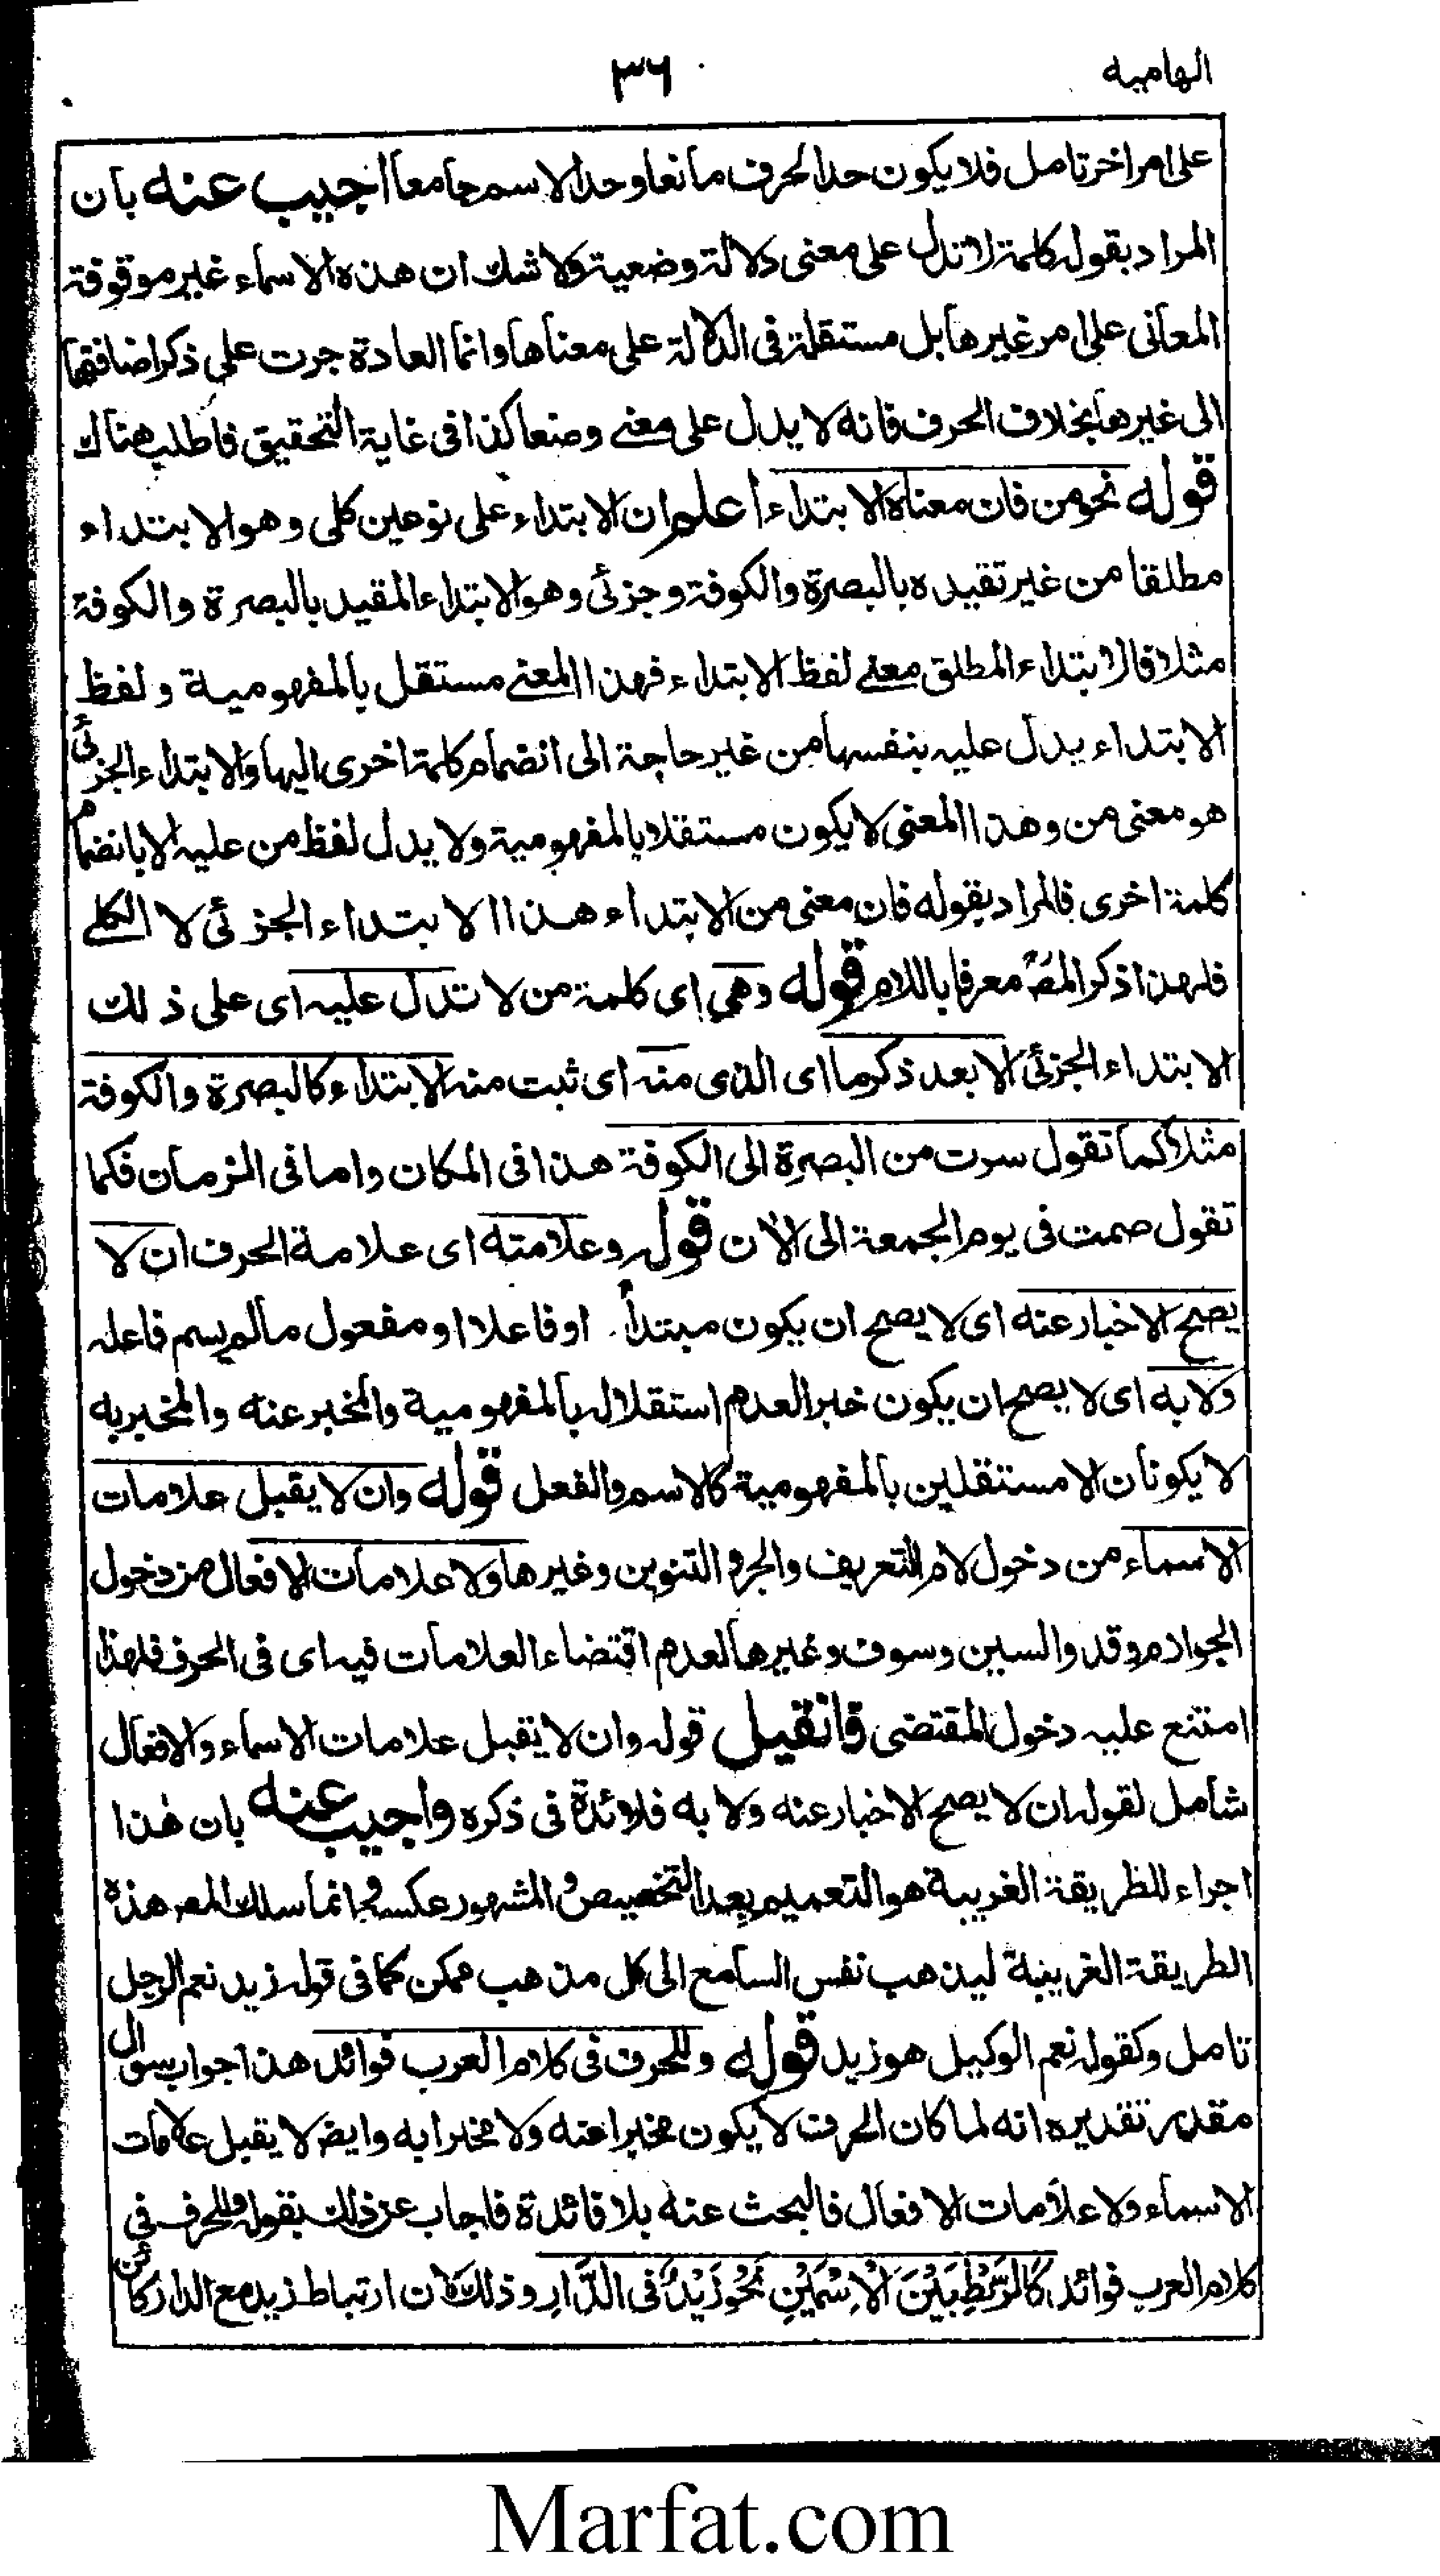 الهاميه
٣٦
على امر اخر تامل فلا يكون حد الحرف مانعا وحد الاسم جامعا اجيب عنه بان
المراد بقوله كلمة لا تدل على معنى دلالة وضعية ولا شك ان هذه الاسماء غير موقوفة
المعانى على امر غيرها بل مستقلة فى الدلالة على معناها وانما العادة جرت على ذكر اضافتها
الى غيرها بخلاف الحرف فانه لا يدل على معنے وضعا كذا فى غاية التحقيق فاطلب هناك
قوله نحو من فان معناه الابتداء اعلم ان الابتداء على نوعين كلى وهو الابتداء
مطلقا من غير تقييده بالبصرة والكوفة وجزئى وهو الابتداء المقيد بالبصرة والكوفة
مثلا فالابتداء المطلق معنے لفظ الابتداء فهذا المعنے مستقل بالمفهومية ولفظ
الابتداء يدل عليه بنفسها من غير حاجة الى انضمام كلمة اخرى اليها والابتداء الجزئى
هو معنى من وهذا المعنى لا يكون مستقلا بالمفهومية ولا يدل لفظ من عليه الا بانضمام
كلمة اخرى فالمراد بقوله فان معنى من الابتداء هذا الابتداء الجزئى لا الكلے
فلهذا ذكر المصؒ معرفا باللام قوله وهى اى كلمة من لا تدل عليه اى على ذلك
الابتداء الجزئى الا بعد ذكر ما اى الذى منه اى ثبت منه الابتداء كالبصرة والكوفة
مثلا كما تقول سرت من البصرة الى الكوفة هذا فى المكان واما فى الزمان فكما
تقول صمت فى يوم الجمعة الى الان قوله وعلامته اى علامة الحرف ان لا
يصح الاخبار عنه اى لا يصح ان يكون مبتدأ او فاعلا او مفعول مالم يسم فاعله
ولا به اى لا يصح ان يكون خبرا لعدم استقلاله بالمفهومية والمخبر عنه والمخبر به
لا يكونان الا مستقلين بالمفهومية كالاسم والفعل قوله وان لا يقبل علامات
الاسماء من دخول لام التعريف والجر والتنوين وغيرها ولا علامات الافعال من دخول
الجوازم وقد والسين وسوف وغيرها لعدم اقتضاء العلامات فيه اى فى الحرف فلهذا
امتنع عليه دخول المقتضى فان قيل قوله وان لا يقبل علامات الاسماء والافعال
شامل لقوله ان لا يصح الاخبار عنه ولا به فلا ئدة فى ذكره واجيب عنه بان هٰذا
اجراء للطريقة الغريبة هو التعميم بعد التخصيص والمشهور عكسه وانما سلك المص هذه
الطريقة الغريبة ليذهب نفس السامع الى كل مذهب ممكن كما فى قوله زيد نعم الرجل
تامل وكقوله نعم الوكيل هو زيد قوله وللحرف فى كلام العرب فوائد هذا جواب سوال
مقدر تقديره انه لما كان الحرف لا يكون مخبرا عنه ولا مخبرا به وايضا لا يقبل علامات
الاسماء ولا علامات الافعال فالبحث عنه بلا فائدة فاجاب عن ذلك بقوله وللحرف فى
كلام العرب فوائد كَالرَّبْطِ بَيْنَ الْاِسْمَيْنِ نَحْوُ زَيْدٌ فى الدَّارِ وذلك لان ارتباط زيد مع الدار كائن
Marfat.com